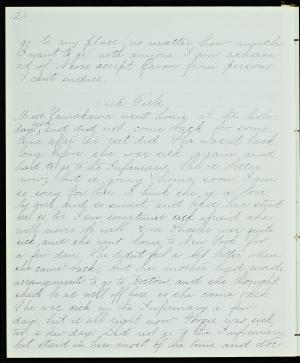 go to any place no matter how much
I want to go with anyone. I am asham
ed of Never accept favor from persons
I cant endure.
Sick Girls
Miss Yamakawa went home at the holi
days and did not come back for some
time after the rest did. She wasn't back
long before she was sick again, and
had to go to the Infirmary. She is better
now, but is going home soon. I am
so sorry for her. I think she is a love
ly girl, and so smart, and takes her
so, too. I am sometimes afraid she
will never be well. was quite
sick, and she went home to New York for
a few days. She felt a bit better when
she came back, but her mother had made
arrangements to go to Boston, and she thought
she'd be as well off here, so she came back.
She was sick in the Infirmary a few
days but is all right now. was sick,
too, a few days. Did not go to the Infirmary,
but staid in here most of the time and doc